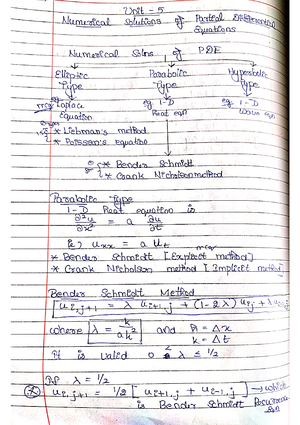 Unit - 5
Numerical Solutions of Partial Differential
Equations
Numerical Solns of PDE
Elliptic Parabolic Hyperbolic
Type Type Type
eg Laplace eg 1-D eg 1-D
Equation Heat eqn Wave eqn
* Liebman's method
* Poisson's equation
* Bender Schmidt
* Crank Nicholson method
Parabolic Type
1-D Heat equation is
∂²u/∂x² = a ∂u/∂t
ie) u_xx = a u_t
* Bender Schmidt [Explicit method]
* Crank Nicholson method [Implicit method]
Bender Schmidt Method
u_{i,j+1} = λ u_{i+1,j} + (1-2λ) u_{i,j} + λ u_{i-1,j}
where λ = k/ah² and h = Δx
k = Δt
It is valid 0 < λ ≤ 1/2
If λ = 1/2
u_{i,j+1} = 1/2 [u_{i+1,j} + u_{i-1,j}] → which
is Bender Schmidt Recurrence